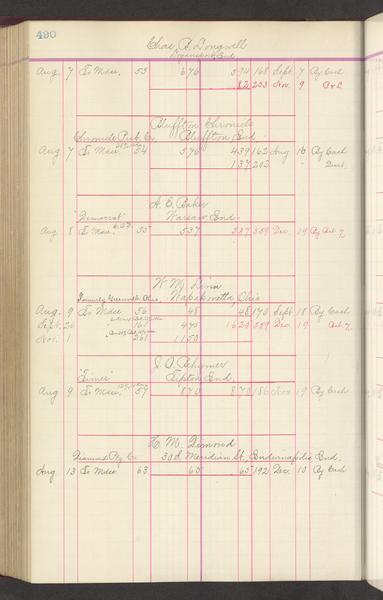 490
Chas. A. Longwell
Logansport, Ind.
Aug. 7 To Mdse. 53 676 594 168 Sept 7 By Cash
82 203 Nov. 9 P & L
Bluffton Chronicle
Chronicle Pub. Co. Bluffton Ind.
Aug 7 To Mdse. 54 576 439 162 Aug 16 By Cash
137 202 " Disct.
A. E. Baker
"Democrat" Warsaw, Ind.
Aug 8 To Mdse. 55 537 537 559 Dec. 19 By
W. M. Linn
Formerly Greenville Ohio. Wapakoneta, Ohio
Aug. 9 To Mdse 56 48 48 170 Sept. 18 By Cash
Sept. 26 " 161 475 1623 559 Dec. 19
Nov. 1 " 261 1150
J. A. Rhymer
"Times" Tipton, Ind.
Aug 9 To Mdse. 57 870 870 186 Nov 19 By Cash
H. M. Dimond
Meridian St., Indianapolis, Ind.
Aug 13 To Mdse 63 65 65 192 Dec. 10 By Cash